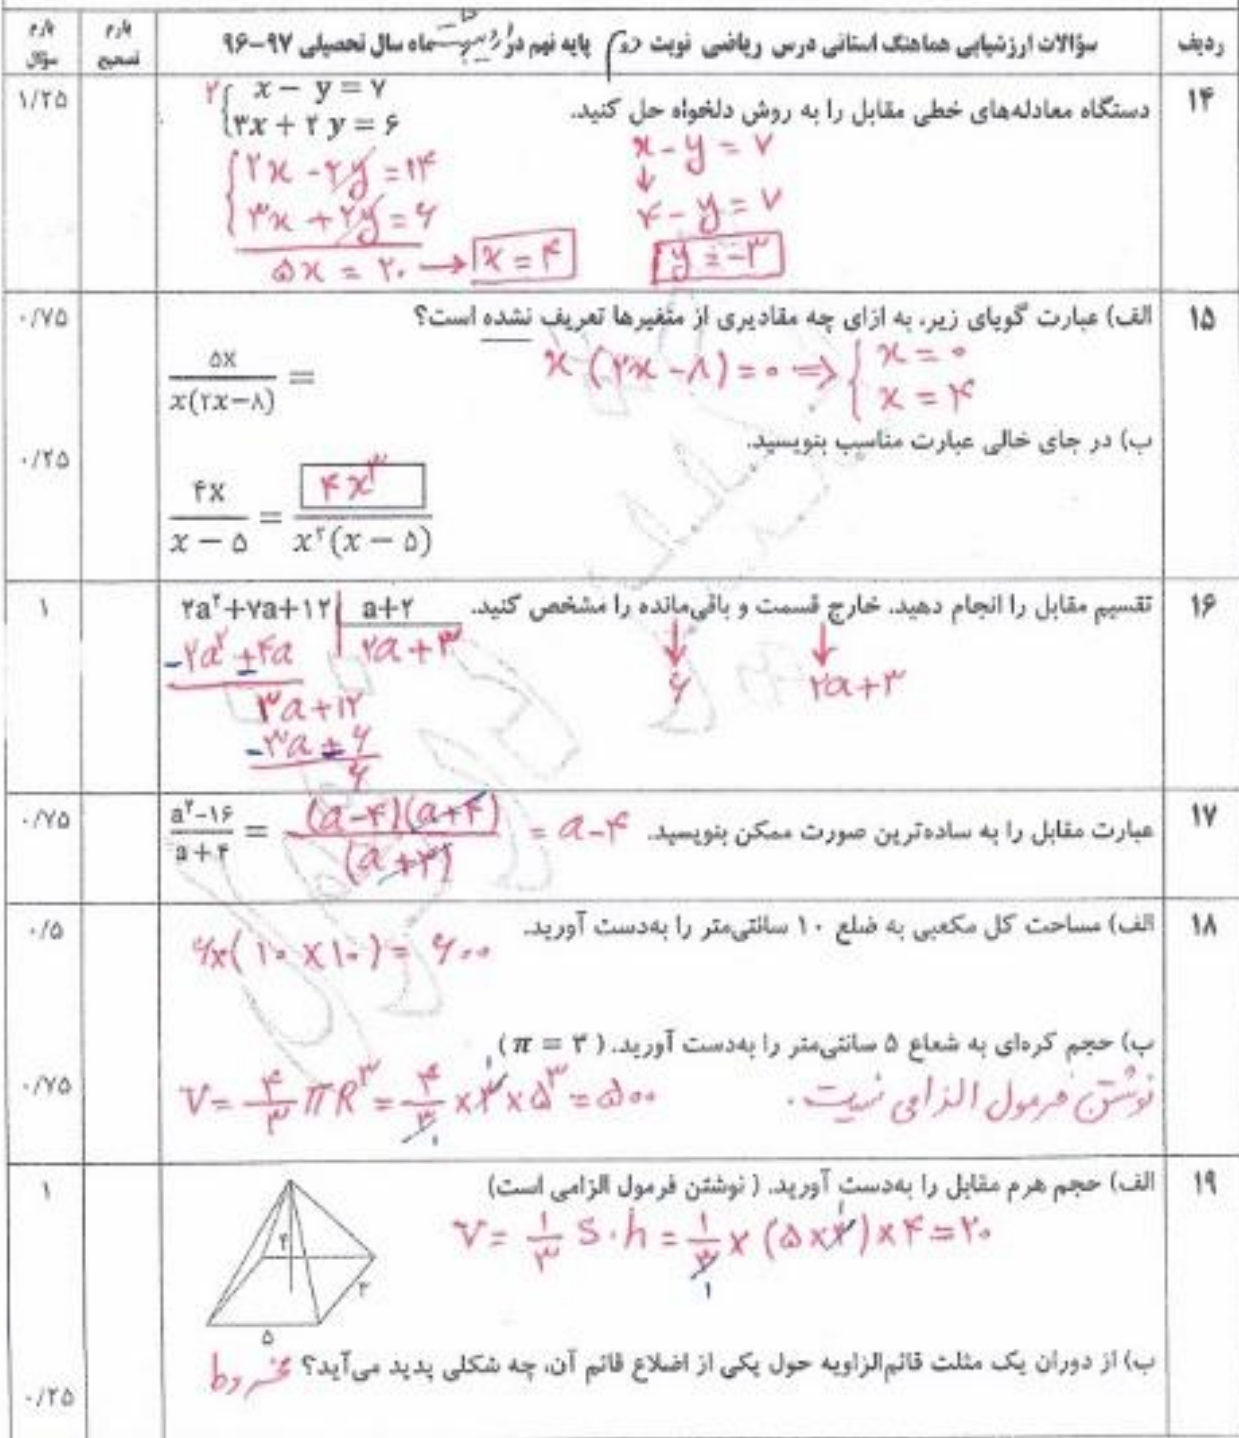 ردیف
سؤالات ارزشیابی هماهنگ استانی درس ریاضی نوبت دوم پایه نهم در اردیبهشت ماه سال تحصیلی ۹۷-۹۶
بارم تصحیح
بارم سؤال
۱۴
دستگاه معادله‌های خطی مقابل را به روش دلخواه حل کنید.
۲ { x − y = ۷
۳x + ۲y = ۶
{ ۲x − ۲y = ۱۴
۳x + ۲y = ۶
۵x = ۲۰ → x = ۴
x − y = ۷
↓
۴ − y = ۷
y = −۳
۱/۲۵
۱۵
الف) عبارت گویای زیر، به ازای چه مقادیری از متغیرها تعریف نشده است؟
۵x / x(۲x−۸) =
x (۲x − ۸) = ۰ ⇒ { x = ۰
x = ۴
۰/۷۵
ب) در جای خالی عبارت مناسب بنویسید.
۴x / x − ۵ = ۴x³ / x²(x − ۵)
۰/۲۵
۱۶
تقسیم مقابل را انجام دهید. خارج قسمت و باقی‌مانده را مشخص کنید.
۲a²+۷a+۱۲ | a+۲
−۲a² + ۴a | ۲a + ۳
۳a + ۱۲
−۳a ± ۶
۶
↓ ۶
↓ ۲a + ۳
۱
۱۷
عبارت مقابل را به ساده‌ترین صورت ممکن بنویسید.
a²−۱۶ / a + ۴ = (a−۴)(a+۴) / (a+۴) = a−۴
۰/۷۵
۱۸
الف) مساحت کل مکعبی به ضلع ۱۰ سانتی‌متر را به‌دست آورید.
۶×(۱۰ × ۱۰) = ۶۰۰
۰/۵
ب) حجم کره‌ای به شعاع ۵ سانتی‌متر را به‌دست آورید. (π = ۳)
V = ۴/۳ πR³ = ۴/۳ × ۳ × ۵³ = ۵۰۰
نوشتن فرمول الزامی نیست.
۰/۷۵
۱۹
الف) حجم هرم مقابل را به‌دست آورید. (نوشتن فرمول الزامی است)
V = ۱/۳ S·h = ۱/۳ × (۵×۳) × ۴ = ۲۰
۴
۳
۵
۱
ب) از دوران یک مثلث قائم‌الزاویه حول یکی از اضلاع قائم آن، چه شکلی پدید می‌آید؟ مخروط
۰/۲۵